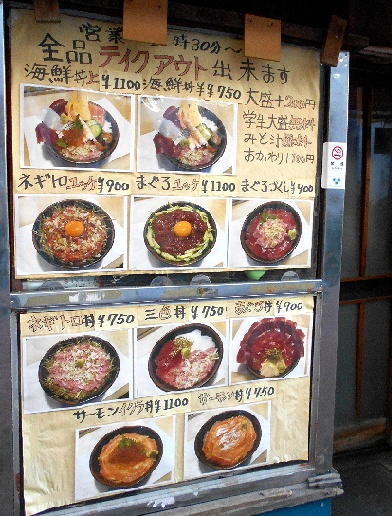 営業 時30分〜
全品テイクアウト出来ます
海鮮丼上¥1100 海鮮丼並¥750
大盛+200円
学生大盛無料
みそ汁無料
おかわり100円
ネギトロユッケ¥900 まぐろユッケ¥1100 まぐろづくし¥900
ネギトロ丼¥750 三色丼¥750 まぐろ丼¥900
サーモンイクラ丼¥1100 サーモン丼¥750